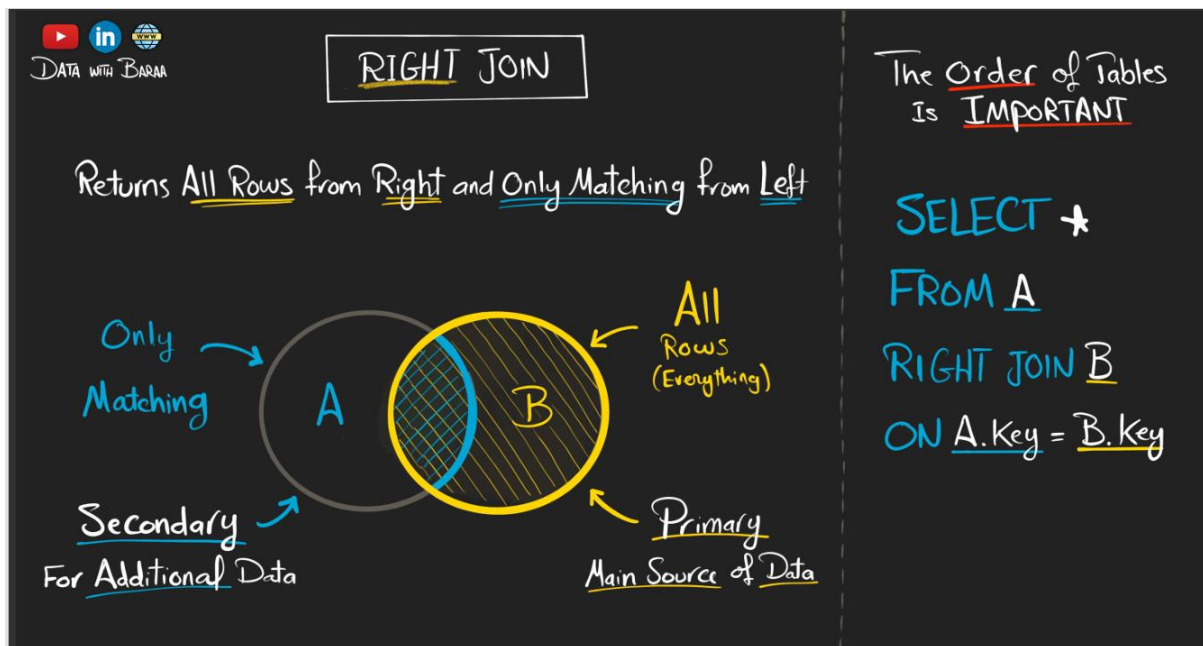 in
WWW
DATA WITH BARAA
RIGHT JOIN
Returns All Rows from Right and Only Matching from Left
Only
Matching
A
B
All
Rows
(Everything)
Secondary
For Additional Data
Primary
Main Source of Data
The Order of Tables
Is IMPORTANT
SELECT *
FROM A
RIGHT JOIN B
ON A.Key = B.Key